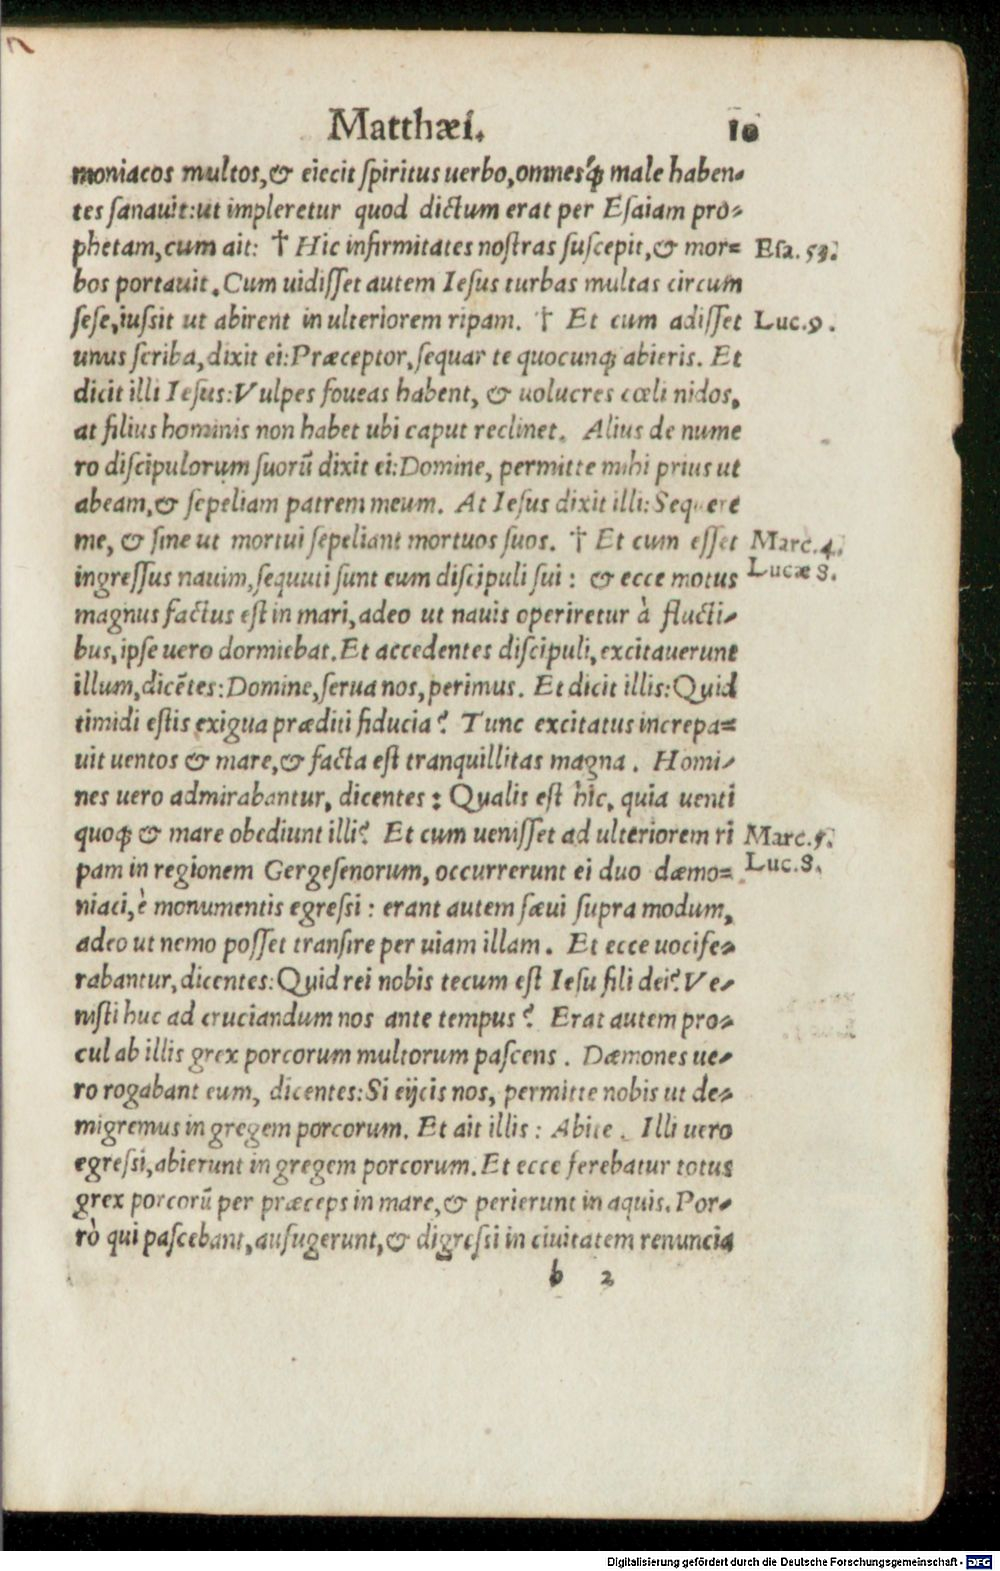 Matthæi. 10
moniacos multos, & eiecit ſpiritus uerbo, omnesq́; male haben-
tes ſanauit: ut impleretur quod dictum erat per Eſaiam pro-
phetam, cum ait: † Hic infirmitates noſtras ſuſcepit, & mor= Eſa. 53.
bos portauit. Cum uidiſſet autem Ieſus turbas multas circum
ſeſe, iuſsit ut abirent in ulteriorem ripam. † Et cum adiſſet Luc. 9.
unus ſcriba, dixit ei: Præceptor, ſequar te quocunq; abieris. Et
dicit illi Ieſus: Vulpes foueas habent, & uolucres cœli nidos,
at filius hominis non habet ubi caput reclinet. Alius de nume
ro diſcipulorum ſuorū dixit ei: Domine, permitte mihi prius ut
abeam, & ſepeliam patrem meum. At Ieſus dixit illi: Sequere
me, & ſine ut mortui ſepeliant mortuos ſuos. † Et cum eſſet Marc. 4.
ingreſſus nauim, ſequuti ſunt eum diſcipuli ſui: & ecce motus Lucæ 8.
magnus factus eſt in mari, adeo ut nauis operiretur à flucti-
bus, ipſe uero dormiebat. Et accedentes diſcipuli, excitauerunt
illum, dicētes: Domine, ſerua nos, perimus. Et dicit illis: Quid
timidi eſtis exigua præditi fiducia? Tunc excitatus increpa=
uit uentos & mare, & facta eſt tranquillitas magna. Homi-
nes uero admirabantur, dicentes: Qualis eſt hic, quia uenti
quoq; & mare obediunt illi? Et cum ueniſſet ad ulteriorem ri Marc. 5.
pam in regionem Gergeſenorum, occurrerunt ei duo dæmo= Luc. 8.
niaci, è monumentis egreſsi: erant autem ſæui ſupra modum,
adeo ut nemo poſſet tranſire per uiam illam. Et ecce uocife-
rabantur, dicentes: Quid rei nobis tecum eſt Ieſu fili dei? Ve-
niſti huc ad cruciandum nos ante tempus? Erat autem pro-
cul ab illis grex porcorum multorum paſcens. Dæmones ue-
ro rogabant eum, dicentes: Si eijcis nos, permitte nobis ut de-
migremus in gregem porcorum. Et ait illis: Abite. Illi uero
egreſsi, abierunt in gregem porcorum. Et ecce ferebatur totus
grex porcorū per præceps in mare, & perierunt in aquis. Por-
rò qui paſcebant, aufugerunt, & digreſsi in ciuitatem renuncia
b 2
Digitalisierung gefördert durch die Deutsche Forschungsgemeinschaft - DFG